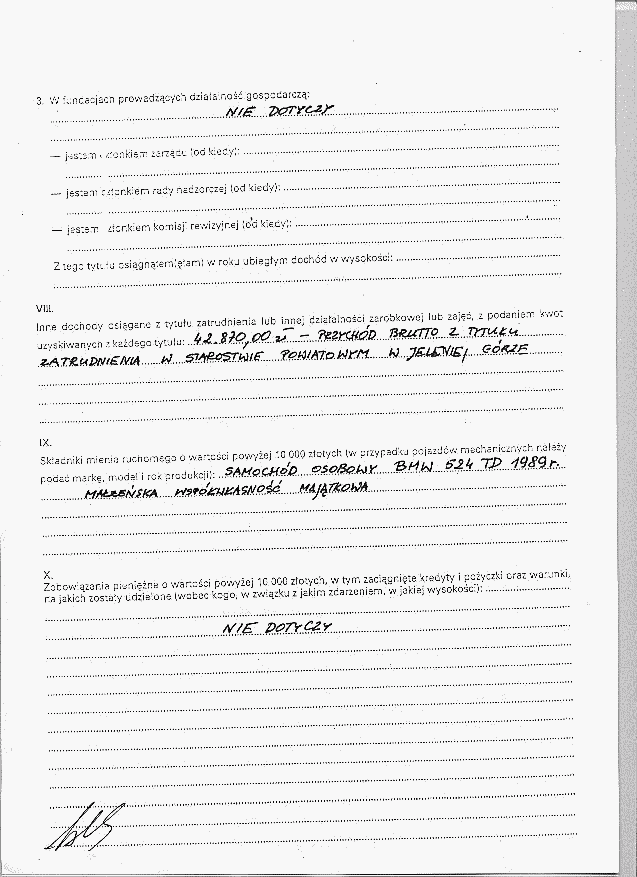 3. W fundacjach prowadzących działalność gospodarczą:
NIE DOTYCZY
— jestem członkiem zarządu (od kiedy):
— jestem członkiem rady nadzorczej (od kiedy):
— jestem członkiem komisji rewizyjnej (od kiedy):
Z tego tytułu osiągnąłem(ęłam) w roku ubiegłym dochód w wysokości:
VIII.
Inne dochody osiągane z tytułu zatrudnienia lub innej działalności zarobkowej lub zajęć, z podaniem kwot
uzyskiwanych z każdego tytułu: 42.870,00 zł – PRZYCHÓD BRUTTO Z TYTUŁU
ZATRUDNIENIA W STAROSTWIE POWIATOWYM W JELENIEJ GÓRZE
IX.
Składniki mienia ruchomego o wartości powyżej 10 000 złotych (w przypadku pojazdów mechanicznych należy
podać markę, model i rok produkcji): SAMOCHÓD OSOBOWY BMW 524 TD 1989 r.
MAŁŻEŃSKA WSPÓŁWŁASNOŚĆ MAJĄTKOWA
X.
Zobowiązania pieniężne o wartości powyżej 10 000 złotych, w tym zaciągnięte kredyty i pożyczki oraz warunki,
na jakich zostały udzielone (wobec kogo, w związku z jakim zdarzeniem, w jakiej wysokości):
NIE DOTYCZY